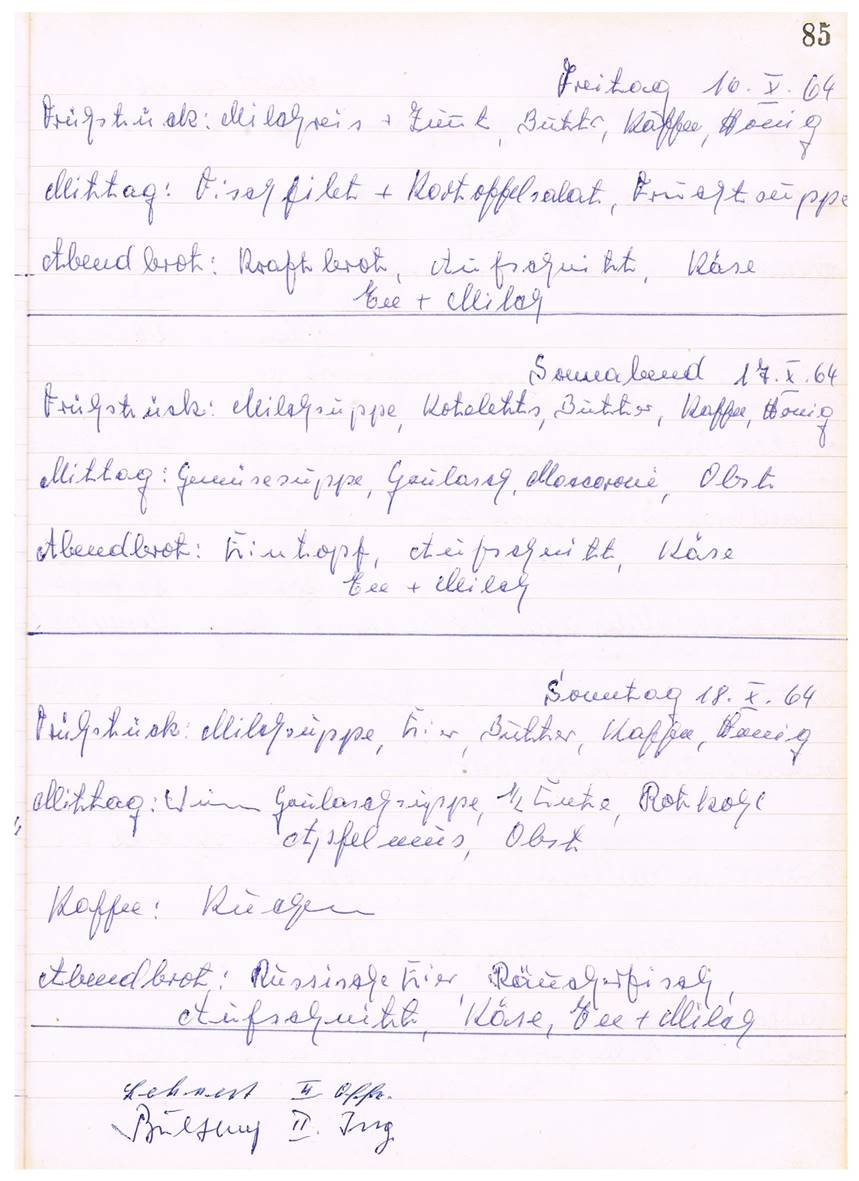 85
Freitag 16. X. 64
Frühstück: Milchreis + Zimt, Butter, Kaffee, Honig
Mittag: Fischfilet + Kartoffelsalat, Fruchtsuppe
Abendbrot: Kraftbrot, Aufschnitt, Käse
Tee + Milch
Sonnabend 17. X. 64
Frühstück: Milchsuppe, Koteletts, Butter, Kaffee, Honig
Mittag: Gemüsesuppe, Gaulasch, Maccaroni, Obst
Abendbrot: Eintopf, Aufschnitt, Käse
Tee + Milch
Sonntag 18. X. 64
Frühstück: Milchsuppe, Eier, Butter, Kaffee, Honig
Mittag: Gaulaschsuppe, 1/2 Ente, Rotkohl
Apfelmus, Obst
Kaffee: Kuchen
Abendbrot: Russische Eier, Räucherfisch,
Aufschnitt, Käse, Tee + Milch
II. Ing